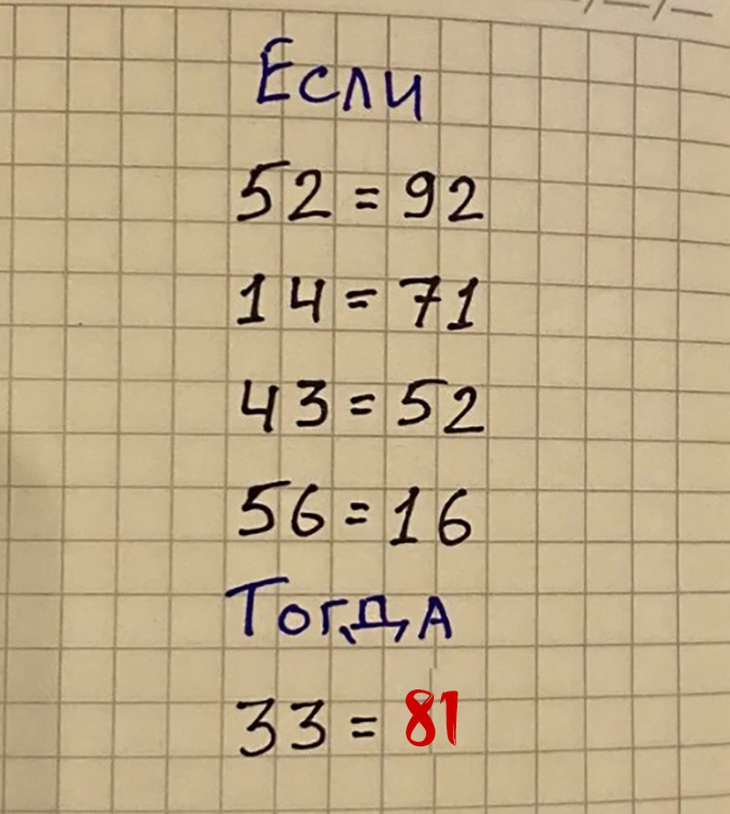 Если
52 = 92
14 = 71
43 = 52
56 = 16
Тогда
33 = 81